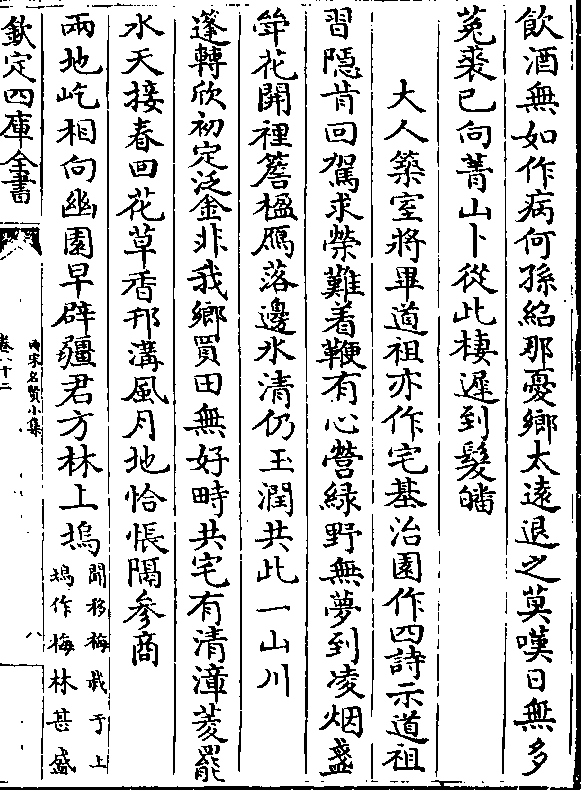 飲酒無如作病何孫紹那憂鄉太逺退之莫嘆日無多
菟裘已向菁山卜從此棲遲到髮皤
大人築室將畢道祖亦作宅基治園作四詩示道祖
習隠肯回駕求榮難着鞭有心營緑野無夢到凌烟盞
斚花開裡簷楹鴈落邊氷清仍玉潤共此一山川
蓬轉欣初定泛金非我鄉買田無好畤共宅有清漳菱罷
水天接春回花草香邗溝風月地恰悵隔參商
兩地屹相向幽園早辟疆君方林上塢
聞移梅栽于上
塢作梅林甚盛
欽定四庫全書
兩宋名賢小集
卷八十二
八